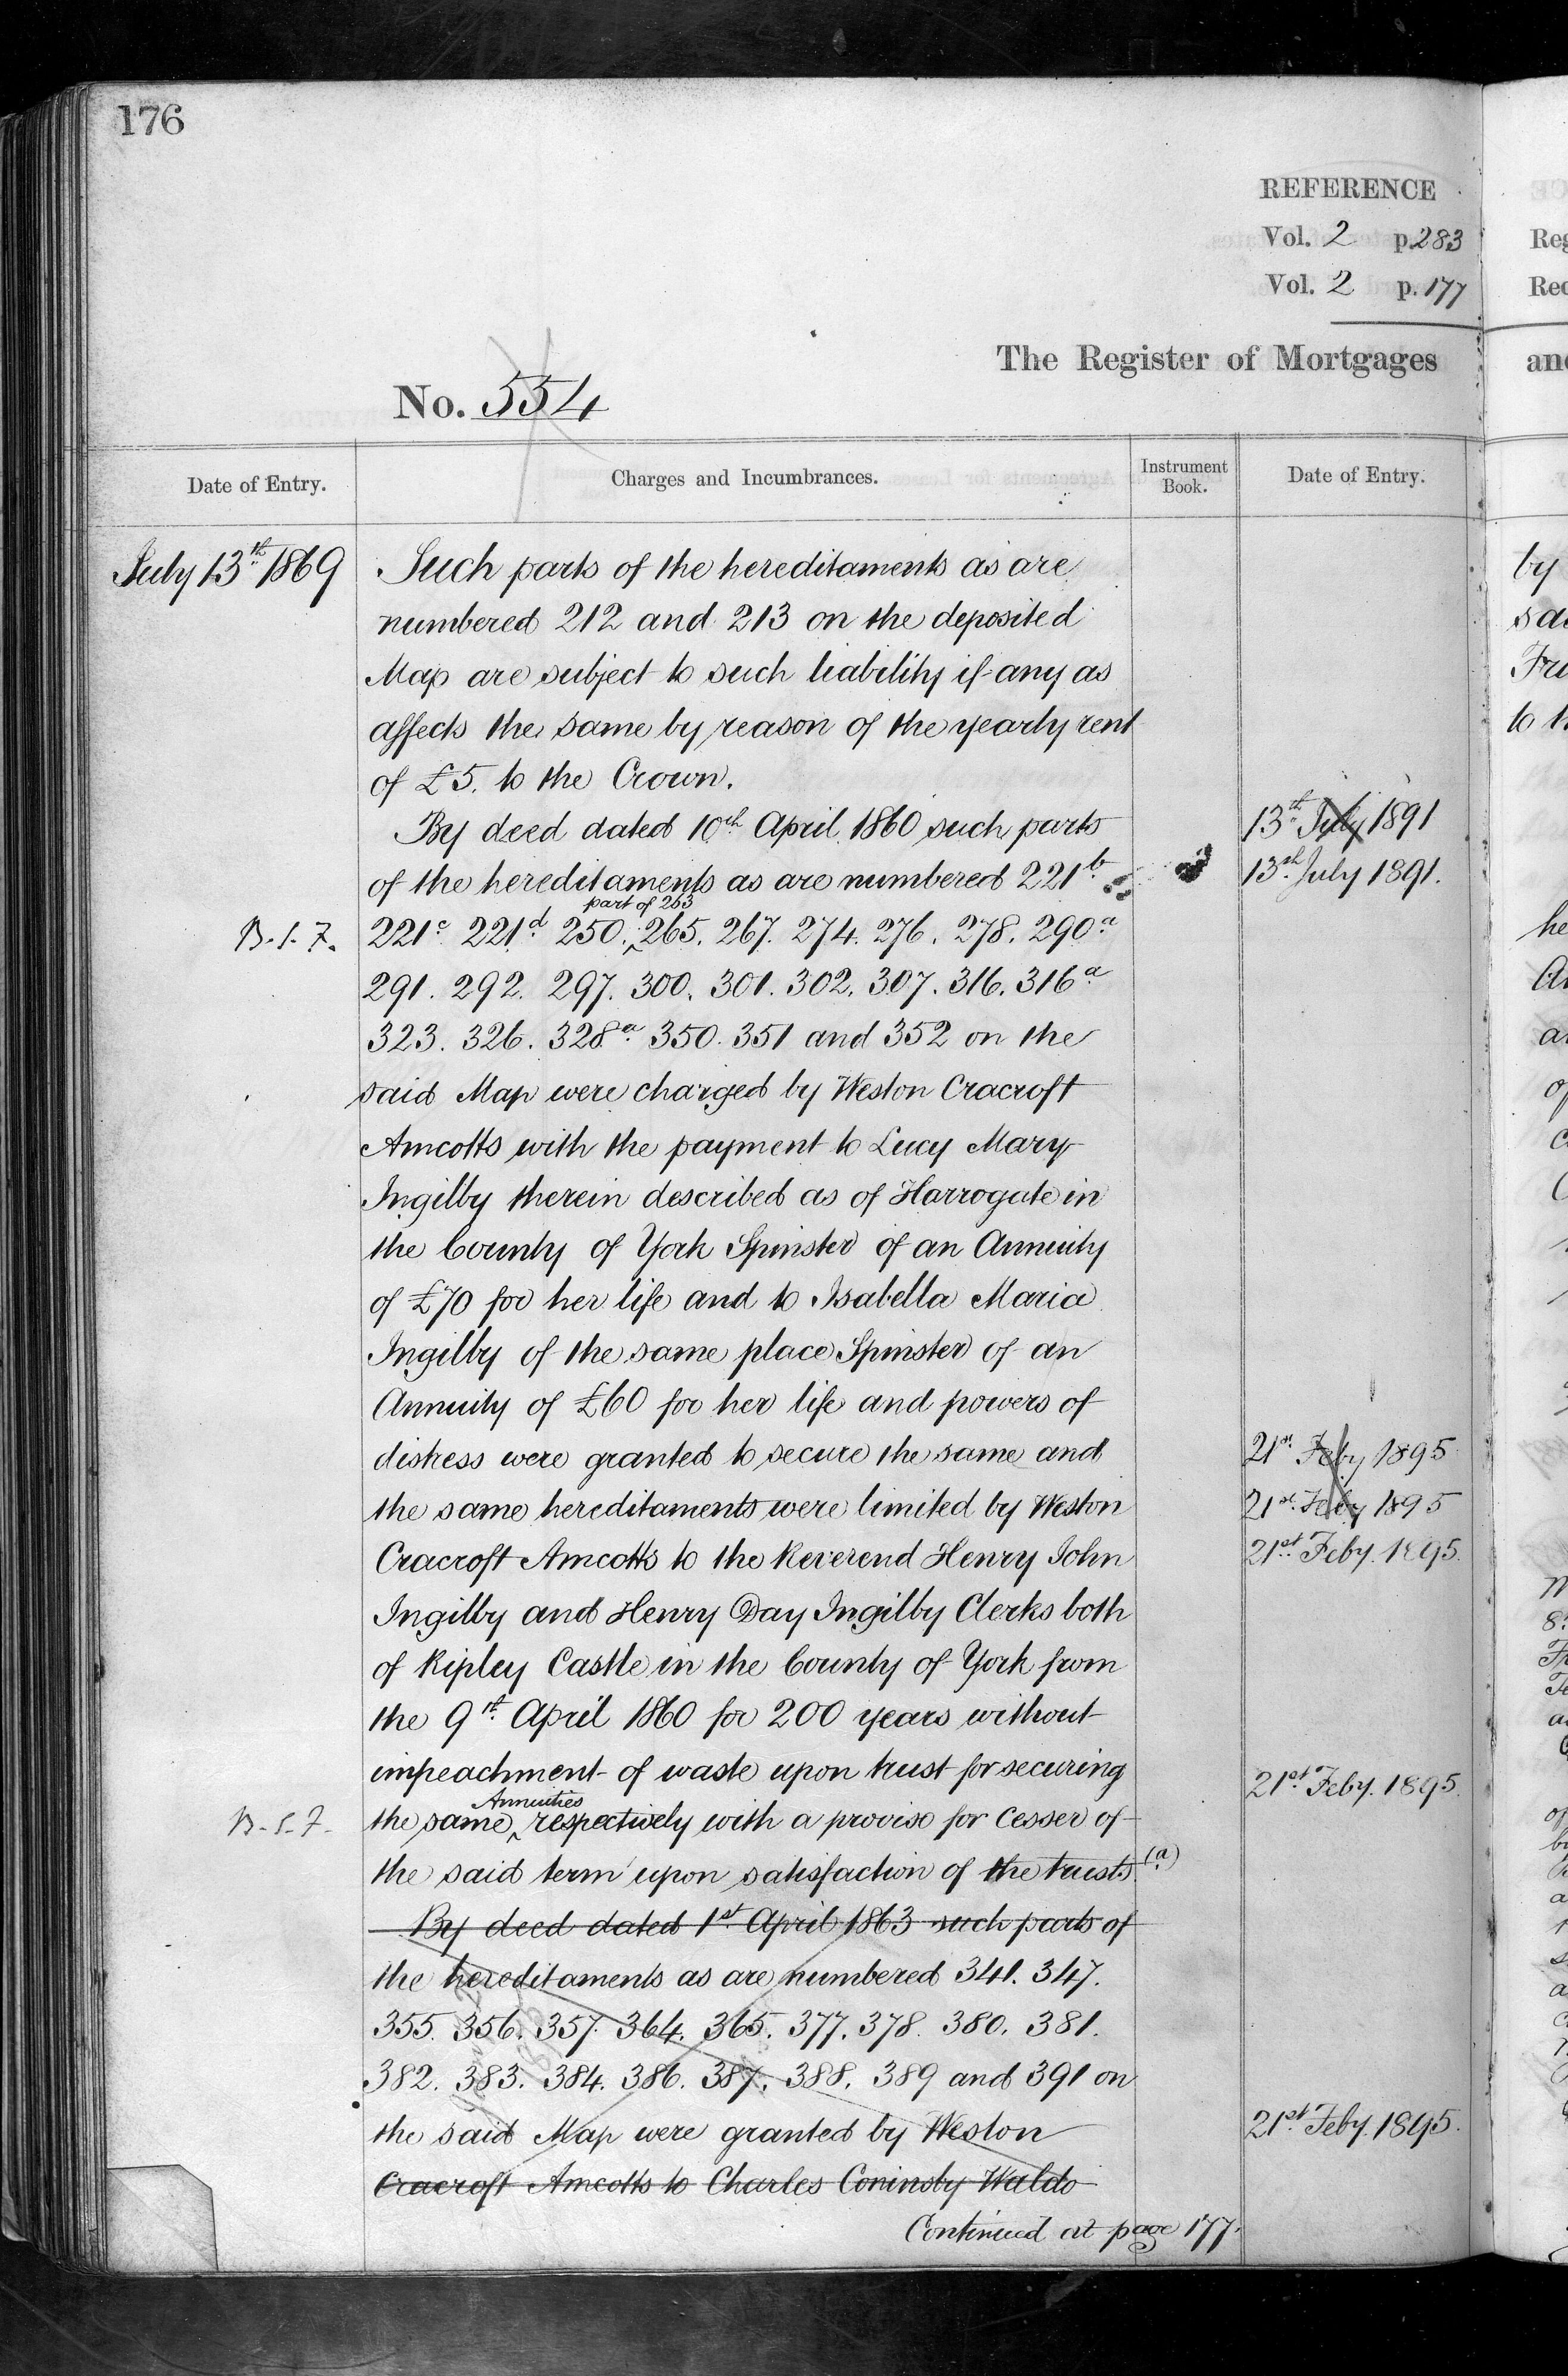 176
REFERENCE
Vol. 2 p. 283
Vol. 2 p. 177
The Register of Mortgages
No. 554
Date of Entry.
Charges and Incumbrances.
Instrument Book.
Date of Entry.
July 13th 1869
Such parts of the hereditaments as are
numbered 212 and 213 on the deposited
Map are subject to such liability if any as
affects the same by reason of the yearly rent
of £5. to the Crown.
By deed dated 10th April 1860 such parts
13th July 1891
of the hereditaments as are numbered 221b
13th July 1891.
part of 263
B.S.F.
221c 221d 250. 265. 267. 274. 276. 278. 290a
291. 292. 297. 300. 301. 302. 307. 316. 316a
323. 326. 328a 350. 351 and 352 on the
said Map were charged by Weston Cracroft
Amcotts with the payment to Lucy Mary
Ingilby therein described as of Harrogate in
the County of York Spinster of an Annuity
of £70 for her life and to Isabella Maria
Ingilby of the same place Spinster of an
Annuity of £60 for her life and powers of
distress were granted to secure the same and
21st Feby 1895
the same hereditaments were limited by Weston
21st Feby 1895
Cracroft Amcotts to the Reverend Henry John
21st Feby. 1895.
Ingilby and Henry Day Ingilby Clerks both
of Ripley Castle in the County of York from
the 9th April 1860 for 200 years without
impeachment of waste upon trust for securing
21st Feby. 1895.
Annuities
B.S.F.
the same respectively with a proviso for Cesser of
the said term upon satisfaction of the trusts (a)
By deed dated 1st April 1863 such parts of
the hereditaments as are numbered 341. 347.
355. 356. 357. 364. 365. 377. 378. 380. 381.
382. 383. 384. 386. 387. 388. 389 and 391 on
the said Map were granted by Weston
21st Feby. 1895.
Cracroft Amcotts to Charles Coninsby Waldo
Continued at page 177.